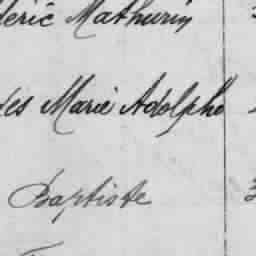 deric Mathurin
des Marie Adolphe
Baptiste